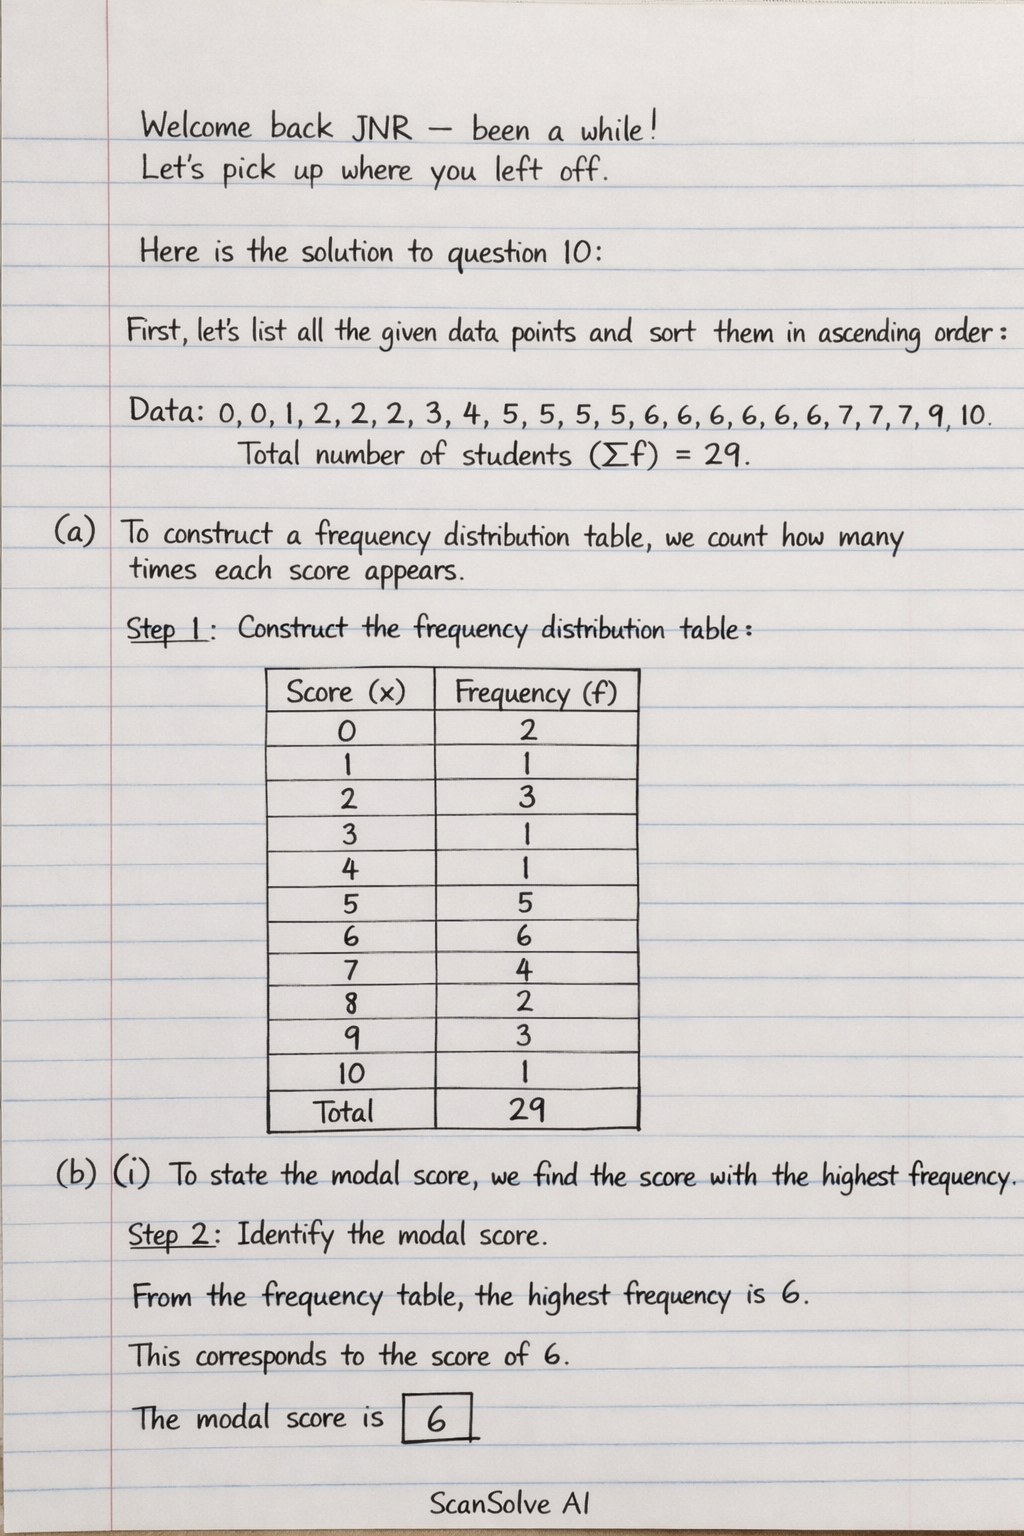 Welcome back JNR — been a while!
Let's pick up where you left off.
Here is the solution to question 10:
First, let's list all the given data points and sort them in ascending order:
Data: 0, 0, 1, 2, 2, 2, 3, 4, 5, 5, 5, 5, 6, 6, 6, 6, 6, 6, 7, 7, 7, 9, 10.
Total number of students (Σf) = 29.
(a) To construct a frequency distribution table, we count how many
times each score appears.
Step 1: Construct the frequency distribution table:
Score (x) Frequency (f)
0 2
1 1
2 3
3 1
4 1
5 5
6 6
7 4
8 2
9 3
10 1
Total 29
(b) (i) To state the modal score, we find the score with the highest frequency.
Step 2: Identify the modal score.
From the frequency table, the highest frequency is 6.
This corresponds to the score of 6.
The modal score is 6
ScanSolve AI